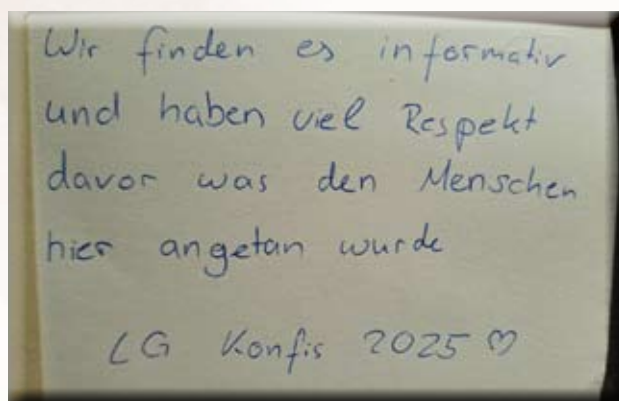 Wir finden es informativ
und haben viel Respekt
davor was den Menschen
hier angetan wurde
LG Konfis 2025 ♡